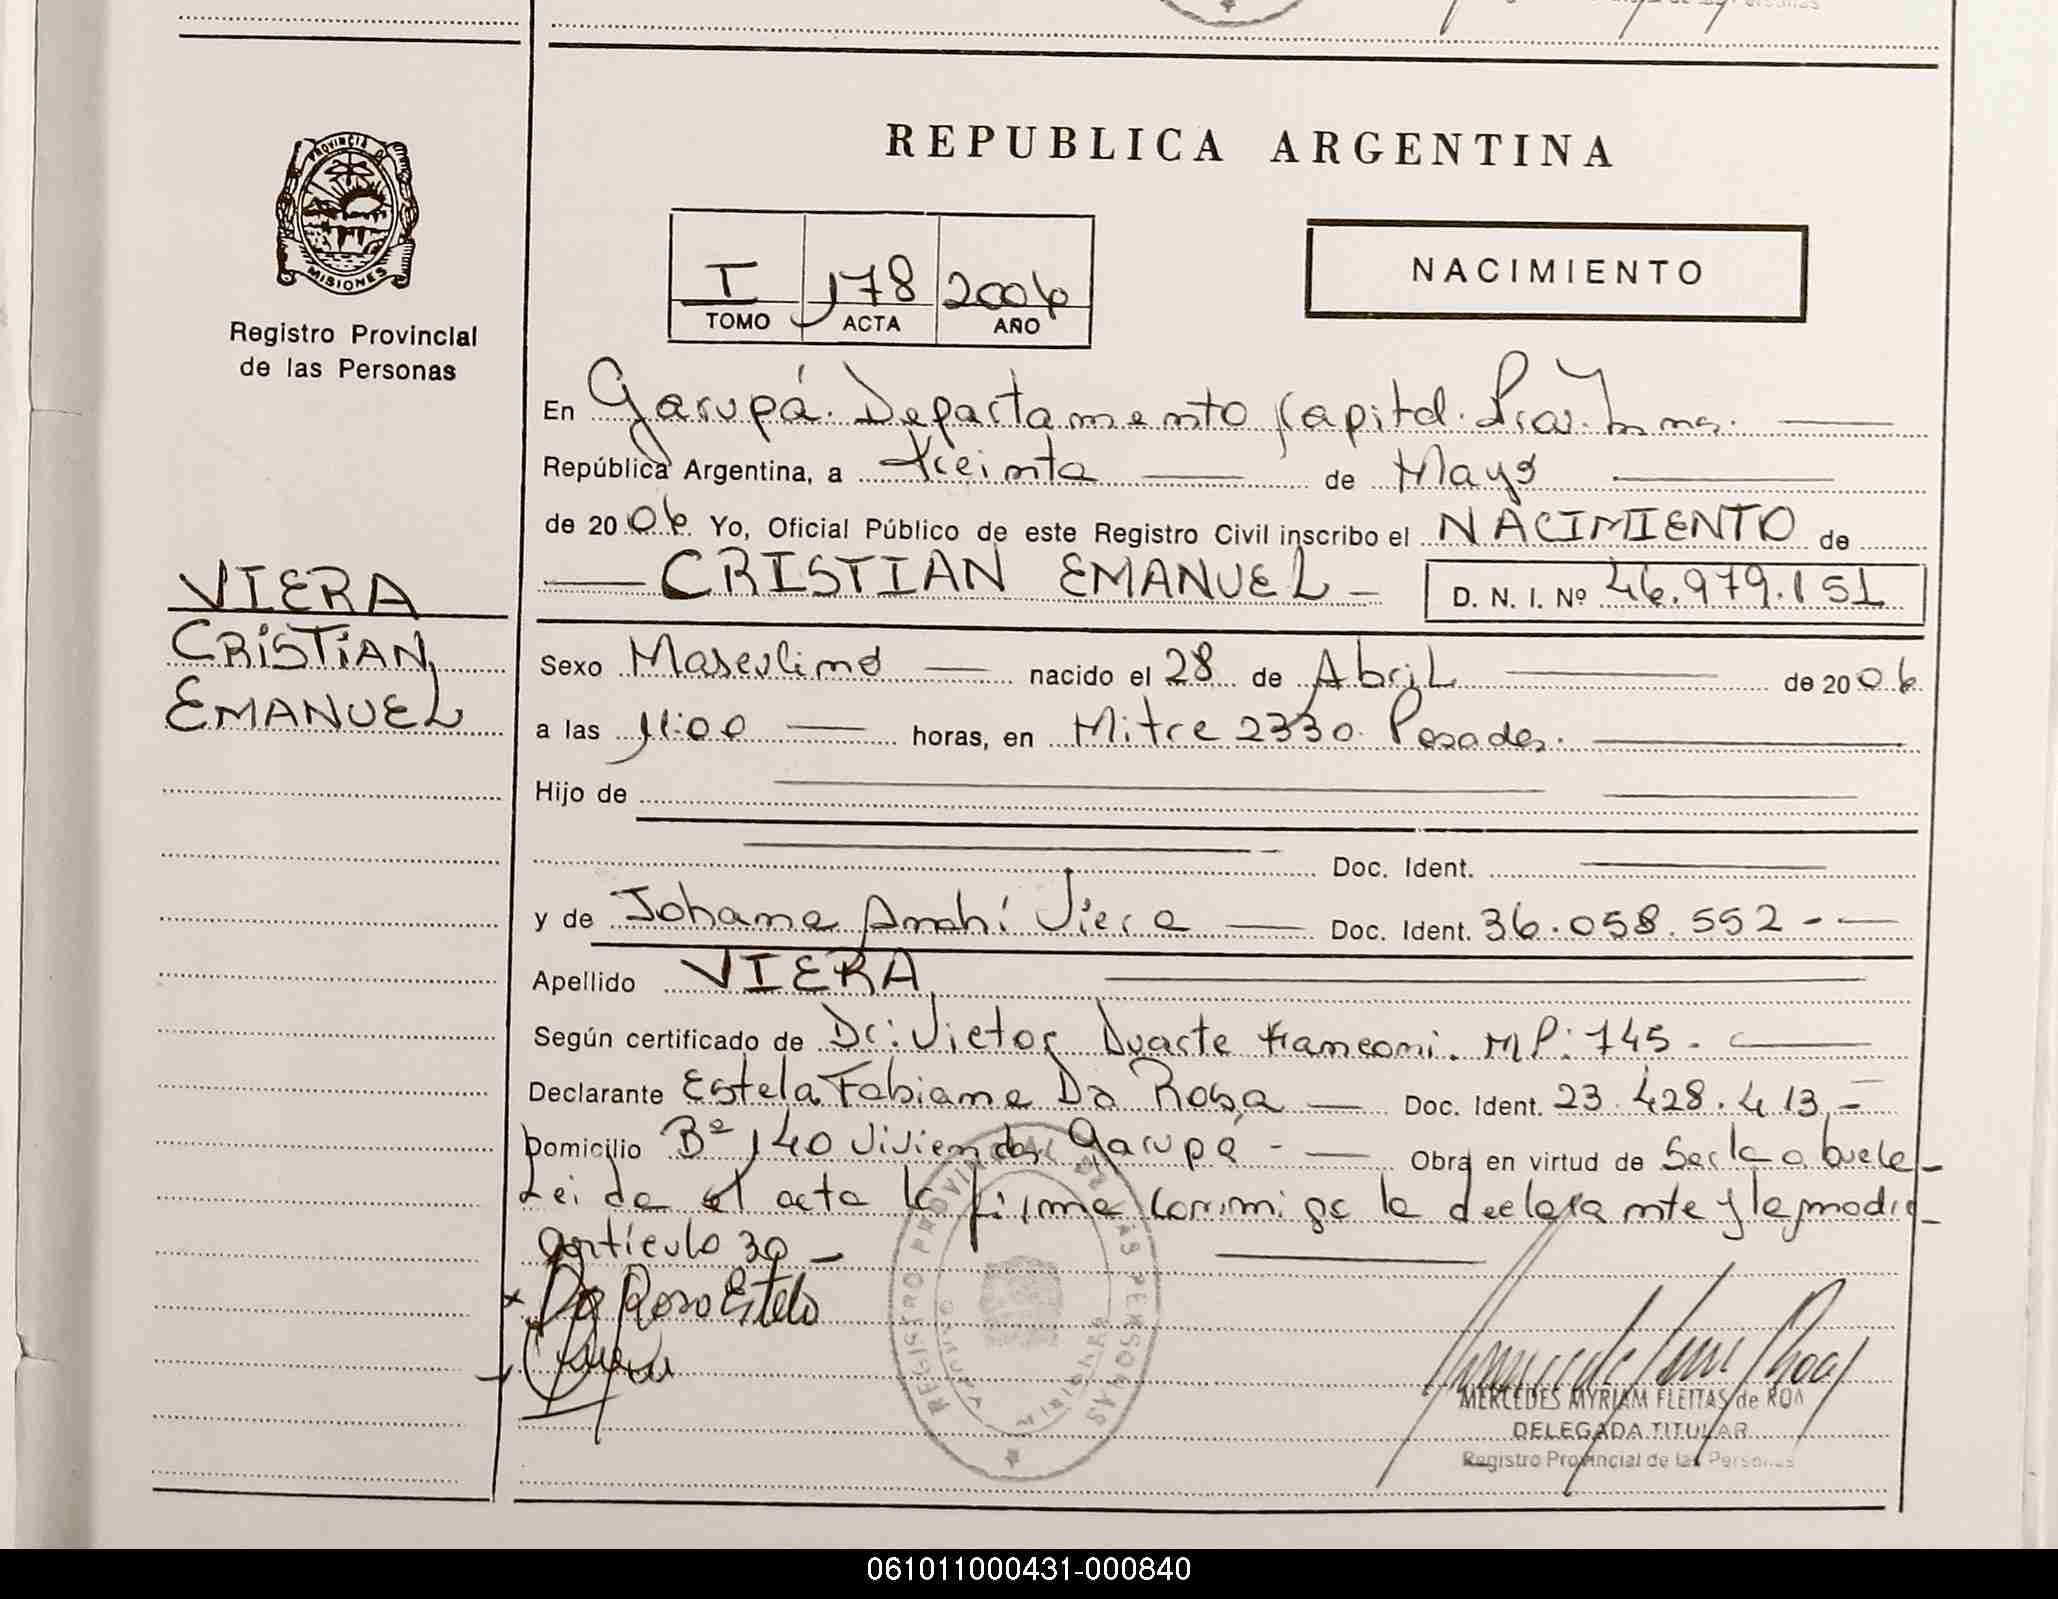 REPUBLICA ARGENTINA
PROVINCIA DE
MISIONES
Registro Provincial
de las Personas
I 178 2006
TOMO ACTA AÑO
NACIMIENTO
En Garupá. Departamento Capital.
República Argentina, a treinta de Mayo
de 2006 Yo, Oficial Público de este Registro Civil inscribo el NACIMIENTO de
CRISTIAN EMANUEL D. N. I. Nº 46.979.151
VIERA
CRISTIAN
EMANUEL
Sexo Masculino nacido el 28 de Abril de 2006
a las 11:00 horas, en Mitre 2330. Posadas.
Hijo de
Doc. Ident.
y de Johana Anahí Viera Doc. Ident. 36.058.552 -
Apellido VIERA
Según certificado de Dr: Victor Duarte Franconi. MP: 745.
Declarante Estela Fabiana Da Rosa Doc. Ident. 23.428.413 -
Domicilio Bº 140 Viviendas Garupá - Obra en virtud de Ser la abuela -
Leida el acta la firma conmigo la declarante y la madre
artículo 30 -
Da Rosa Estela
REGISTRO PROVINCIAL DE LAS PERSONAS
MERCEDES MYRIAM FLEITAS de ROA
DELEGADA TITULAR
Registro Provincial de las Personas
061011000431-000840